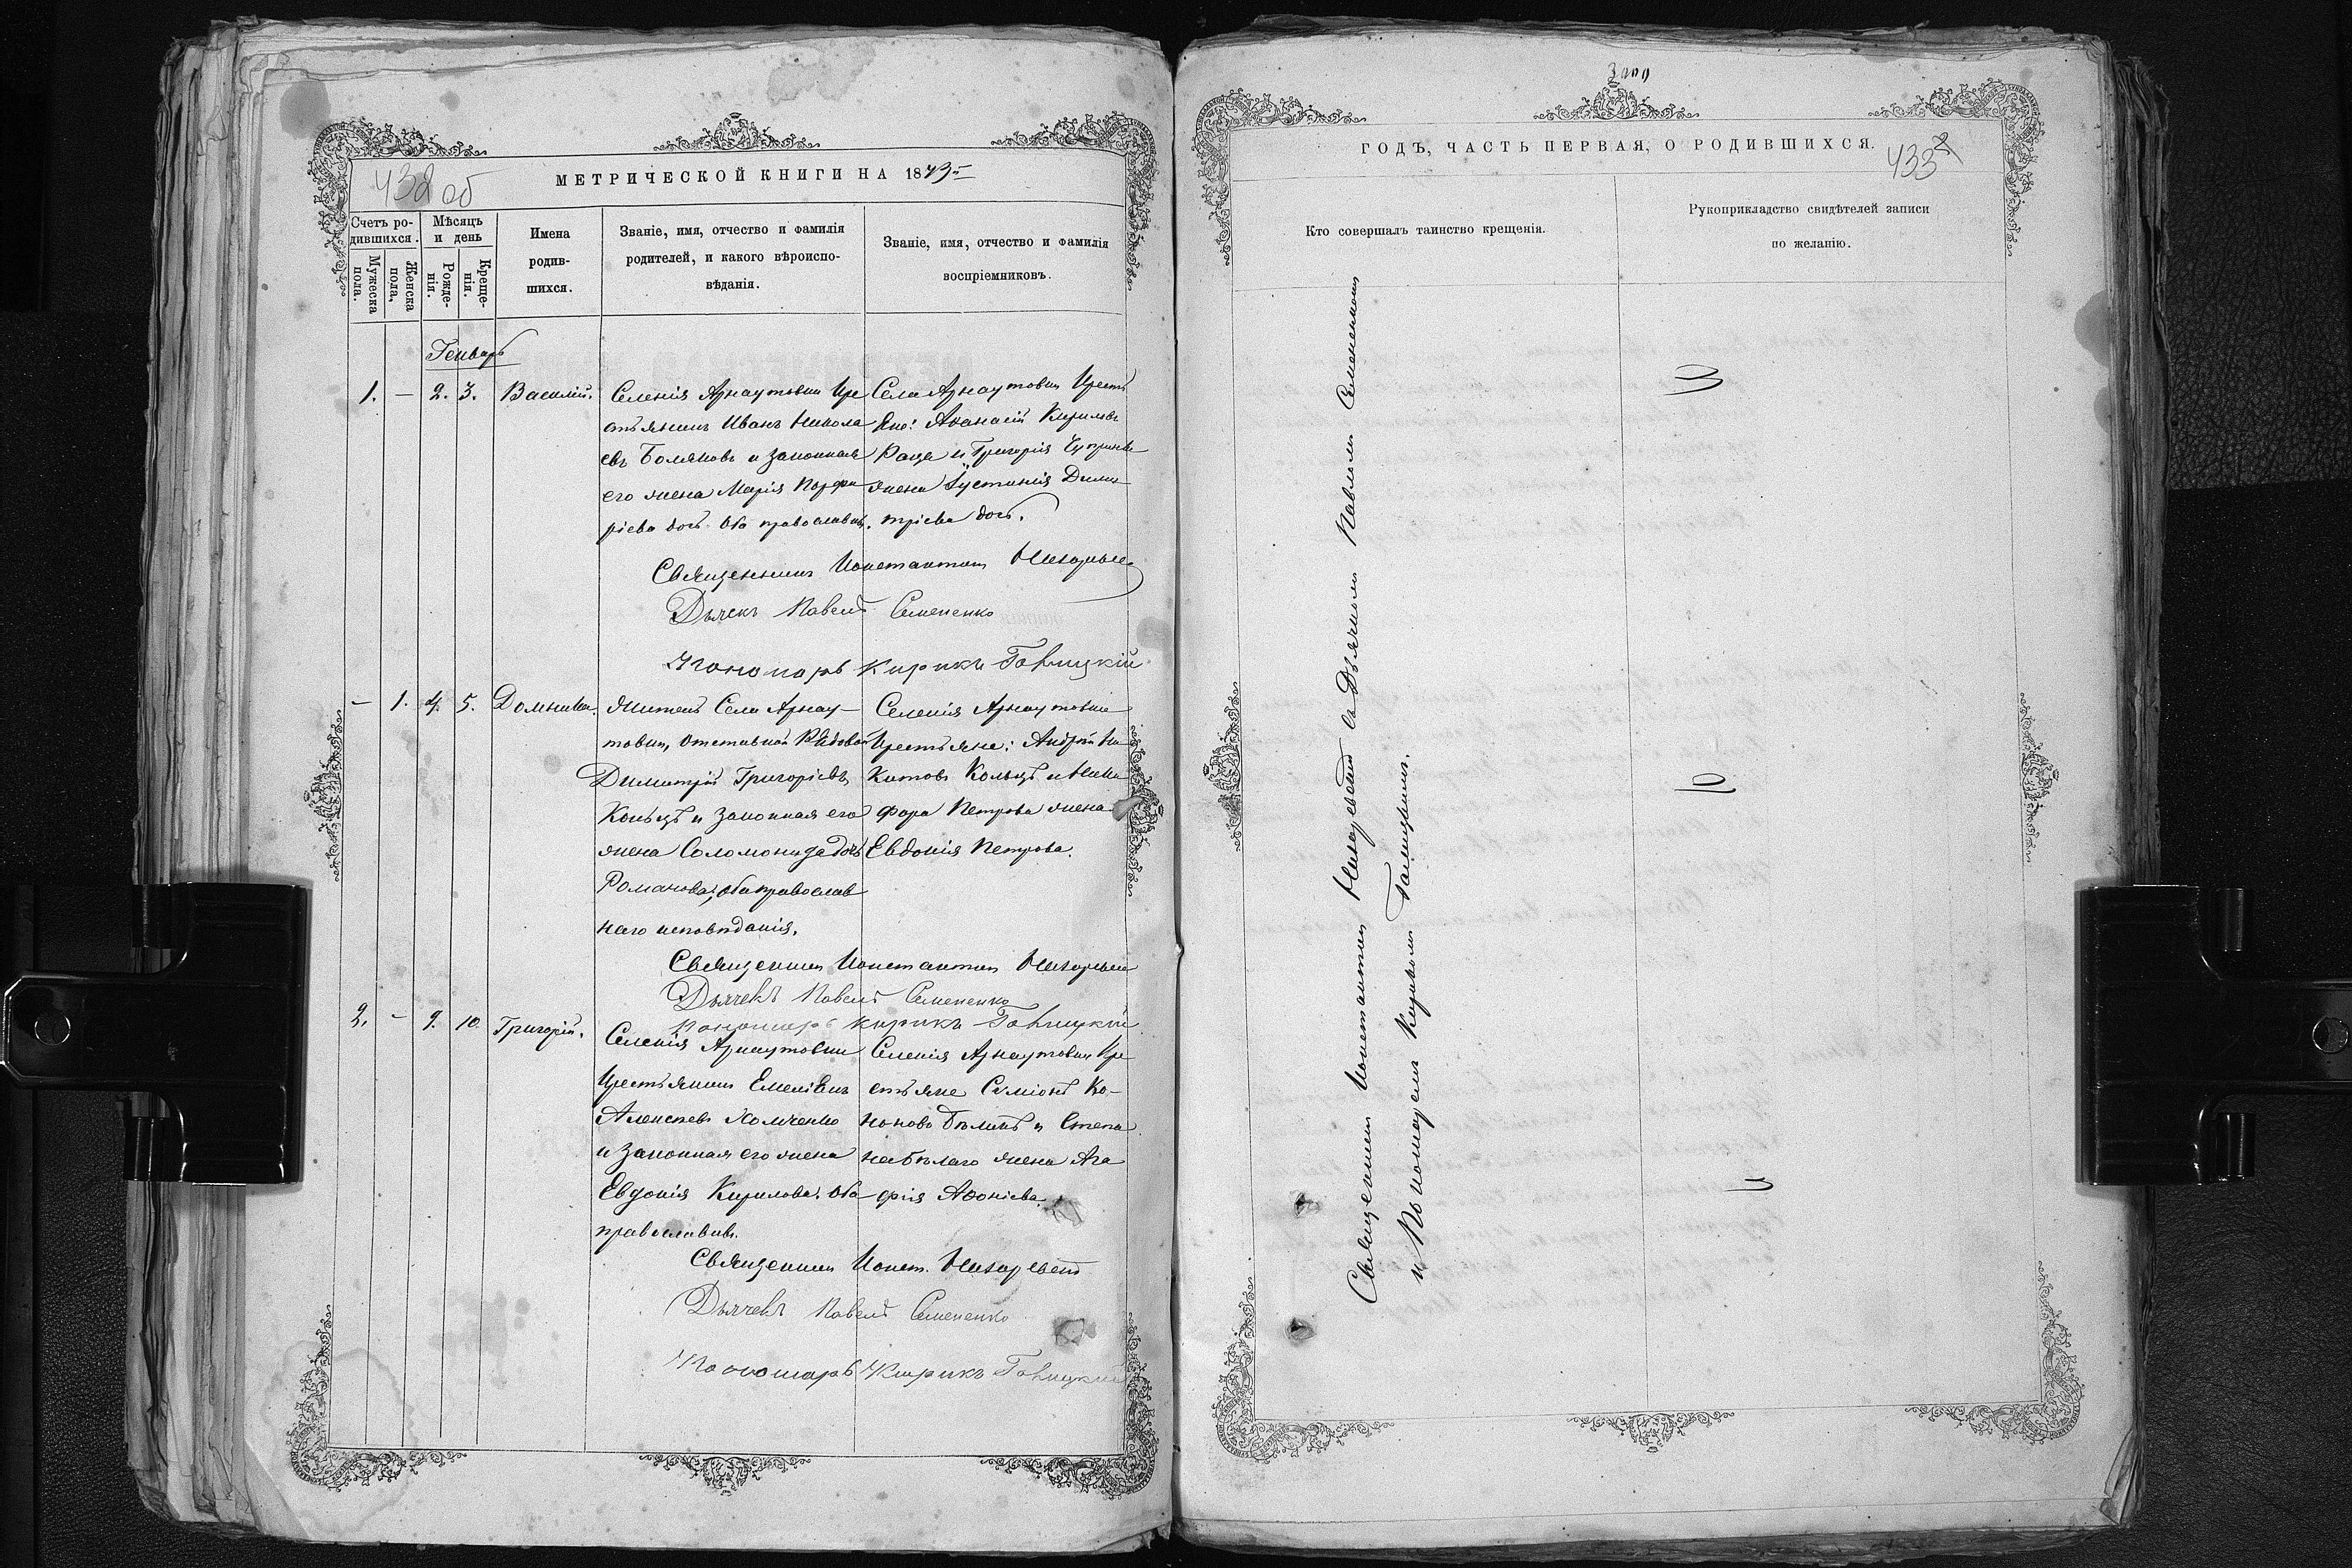 438 об
МЕТРИЧЕСКОЙ КНИГИ НА 1873й
Счетъ ро-
дившихся.
Мужеска
пола.
Женска
пола,
Мѣсяцъ
и день
Рожде-
нія.
Креще-
нія.
Имена
родив-
шихся.
Званіе, имя, отчество и фамилія
родителей, и какого вѣроиспо-
вѣданія.
Званіе, имя, отчество и фамилія
воспріемниковъ.
Генварь
1. — 2. 3. Василій.
Селенія Арнаутовки Кре
стьянинъ Иванъ Никола
евъ Боляновъ и законная
его жена Марія Порфи
ріева дочь. Оба православны.
Села Арнаутовки Кресть
яне: Аѳанасій Кириловъ
и Григорія
жена Іустинія Дими
тріева дочь.
Священникъ Константинъ
Дьячекъ Павелъ Семененко
Пономарь Кирикъ Галицкій
— 1. 4. 5. Домника.
Житель Села Арнау-
товки, отставной Рядовой
Димитрій Григоріевъ
Копыцъ и законная его
жена Соломонида дочь
Романова, оба православ
наго исповѣданія.
Селенія Арнаутовки
Крестьяне: Андрей Ни
китовъ и Ники
фора Петрова жена
Евдокія Петрова.
Священникъ Константинъ
Дьячекъ Павелъ Семененко
Пономарь Кирикъ Галицкій
2. — 9. 10. Григорій.
Селенія Арнаутовки
Крестьянинъ Емеліанъ
Алексѣевъ Хомченко
и законная его жена
Евдокія Кирилова. Оба
православны.
Селенія Арнаутовки Кре
стьяне Симіонъ Ко-
ноновъ Бѣлый и Степа
на Бѣлаго жена Ага
фія Аѳоніева.
Священникъ Конст.
Дьячекъ Павелъ Семененко
Пономарь Кирикъ Галицкій
ГОДЪ, ЧАСТЬ ПЕРВАЯ, О РОДИВШИХСЯ.
433
Кто совершалъ таинство крещенія.
Рукоприкладство свидѣтелей записи
по желанію.
Священникъ Константинъ съ Дьячкомъ Павломъ Семененкомъ
и Пономаремъ Кирикомъ Галицкимъ.